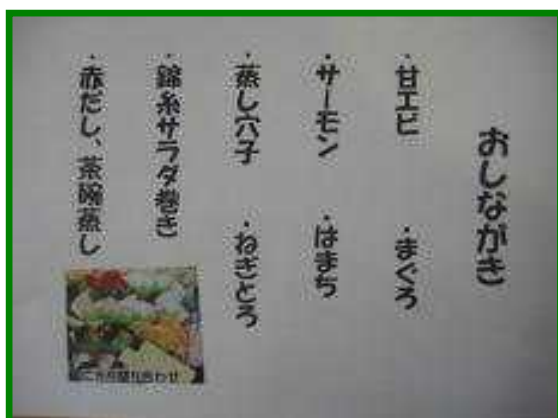 おしながき
・甘エビ ・まぐろ
・サーモン ・はまち
・蒸し穴子 ・ねぎとろ
・錦糸サラダ巻き
・赤だし、茶碗蒸し